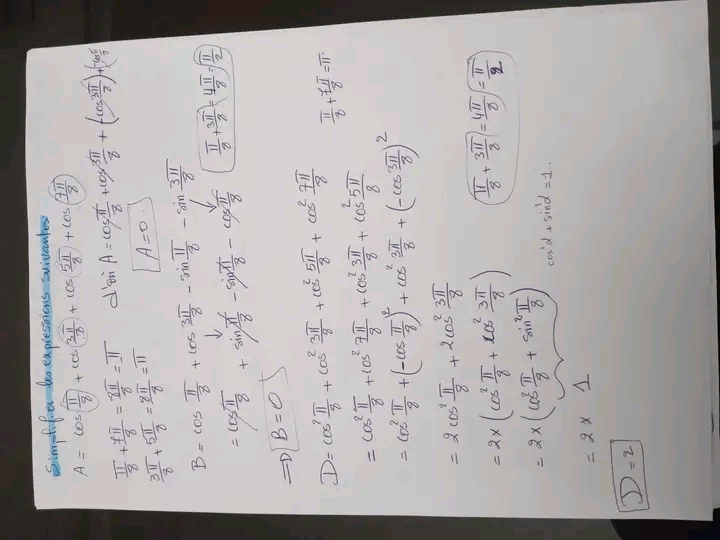 Simplifier les expressions suivantes
A = cos π/8 + cos 3π/8 + cos 5π/8 + cos 7π/8
π/8 + 7π/8 = 8π/8 = π
3π/8 + 5π/8 = 8π/8 = π
d'où A = cos π/8 + cos 3π/8 + (-cos 3π/8) + (-cos π/8)
A = 0.
B = cos π/8 + cos 3π/8 - sin π/8 - sin 3π/8
π/8 + 3π/8 = 4π/8 = π/2
= cos π/8 + sin π/8 - sin π/8 - cos π/8
⇒ B = 0
D = cos² π/8 + cos² 3π/8 + cos² 5π/8 + cos² 7π/8
π/8 + 7π/8 = π
= cos² π/8 + cos² 7π/8 + cos² 3π/8 + cos² 5π/8
= cos² π/8 + (-cos π/8)² + cos² 3π/8 + (-cos 3π/8)²
= 2 cos² π/8 + 2 cos² 3π/8
= 2 × (cos² π/8 + cos² 3π/8)
π/8 + 3π/8 = 4π/8 = π/2
= 2 × (cos² π/8 + sin² π/8)
cos²α + sin²α = 1.
= 2 × 1
D = 2